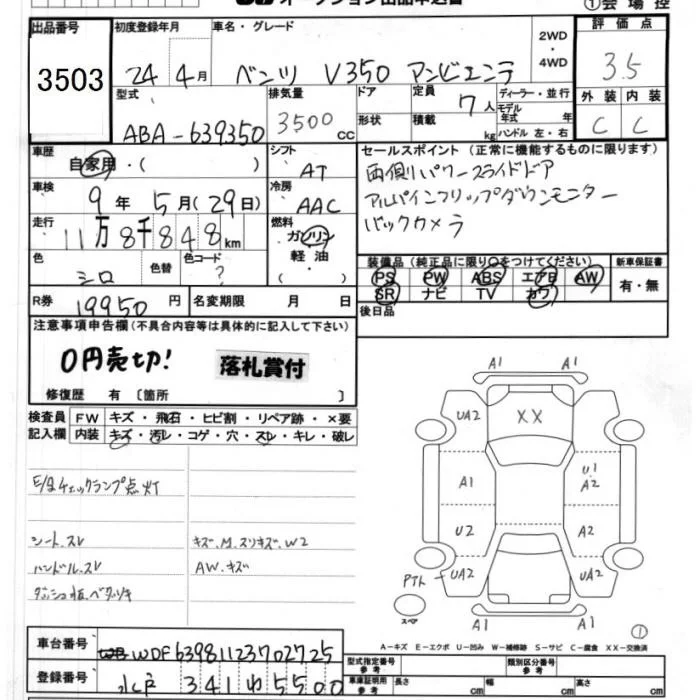 オークション出品申込書
①会場控
出品番号
3503
初度登録年月
24年4月
車名・グレード
ベンツ V350 アンビエンテ
2WD・4WD
評価点
3.5
外装 内装
C C
型式
ABA-639350
排気量
3500cc
ドア形状
定員 7人
積載 kg
ディーラー・並行
モデル年式 年
ハンドル 左・右
車歴
自家用・( )
シフト
AT
車検
9年5月(29日)
冷房
AAC
走行
11万8千848km
燃料
ガソリン
軽油・
( )
色
シロ
色替
色コード
?
R券
19950円
名変期限 月 日
セールスポイント (正常に機能するものに限ります)
両側パワースライドドア
アルパインフリップダウンモニター
バックカメラ
装備品(純正品に限り○をつけてください)
PS PW ABS エアB AW
SR ナビ TV カワ
新車保証書
有・無
後日品
注意事項申告欄(不具合内容等は具体的に記入して下さい)
0円売切!
落札賞付
修復歴 有〔箇所 〕
検査員記入欄
FW キズ・飛石・ヒビ割・リペア跡・×要
内装 キズ・汚レ・コゲ・穴・スレ・キレ・破レ
E/gチェックランプ点灯
シート、スレ
キズ、M、スリキズ、W2
ハンドル、スレ
AW、キズ
ダッシュ板、ベタツキ
A1 A1
UA2 XX
A1 U1 A2
U2 A2
PTト UA2 UA2
スペア
A1 A1
①
A-キズ E-エクボ U-凹み W-補修跡 S-サビ C-腐食 XX-交換済
車台番号
WDF63981123702725
登録番号
水戸 341 ゆ 5500
型式指定番号 参考
類別区分番号 参考
車庫証明用 参考
長さ cm
幅 cm
高さ cm